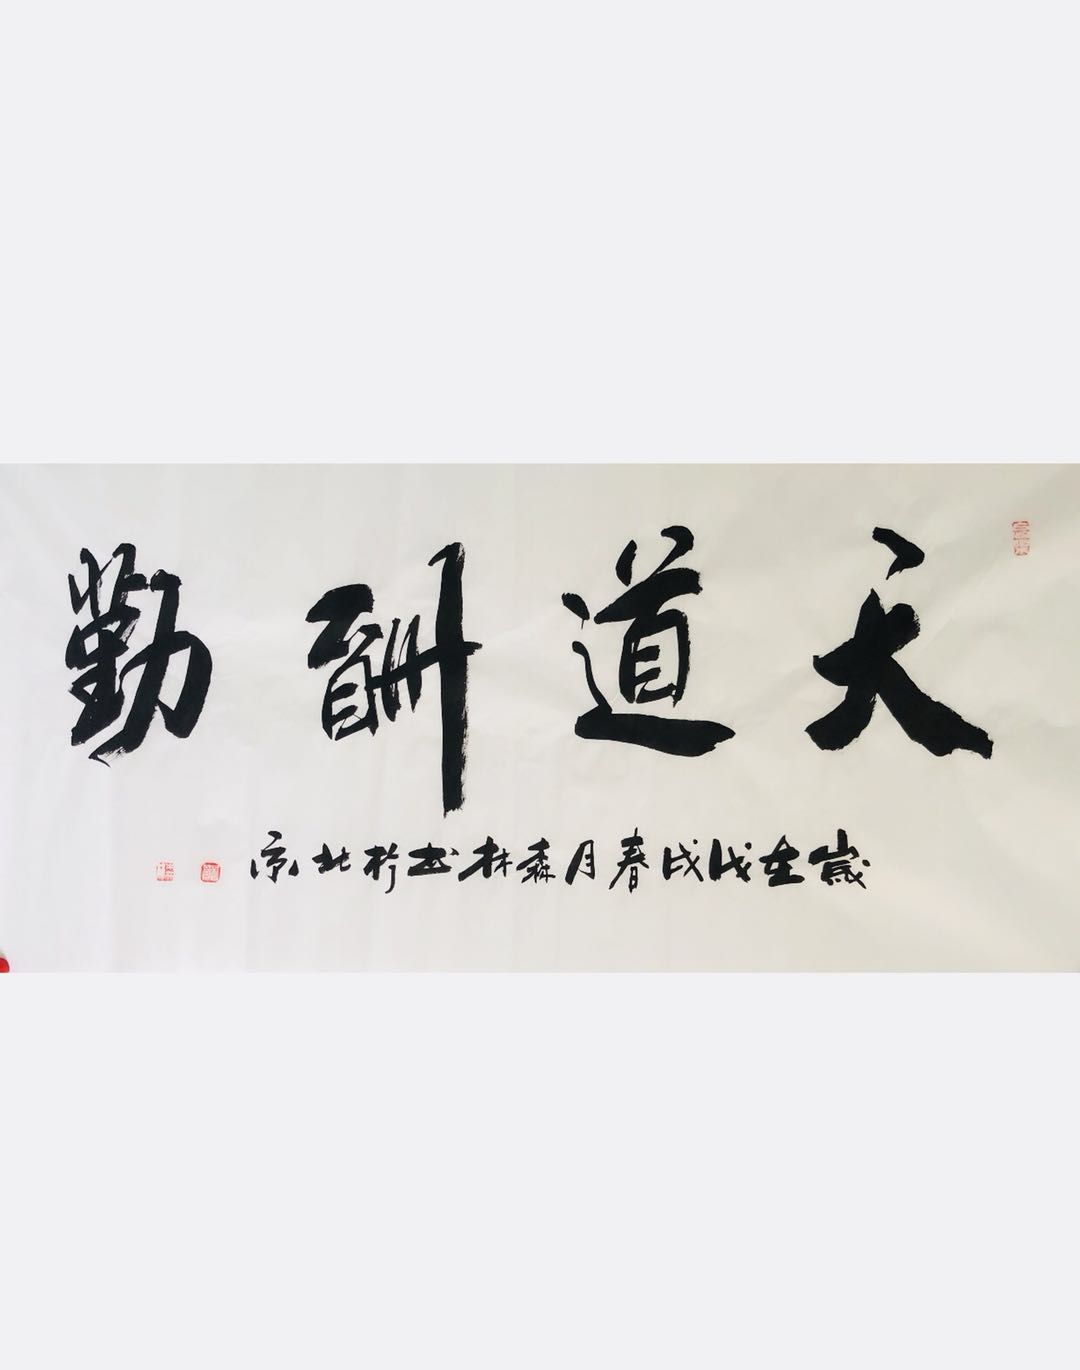 天道酬勤
歲在戊戌春月森林书於北京